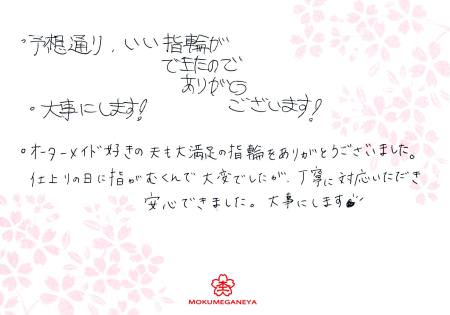 ・予想通り、いい指輪が
できたので
ありがとう
ございます!
・大事にします!
・オーダーメイド好きの夫も大満足の指輪をありがとうございました。
仕上りの日に指がむくんで大変でしたが、丁寧に対応いただき
安心できました。大事にします
MOKUMEGANEYA